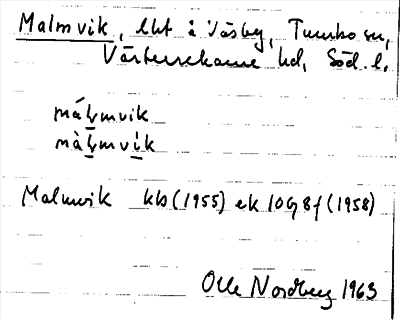 Malmvik, lht å Väsby, Tumbo sn,
Västerrekarne hd, Söd. l.
máḷmvik
màḷmvi̱k
Malmvik kb (1955) ek 10G8f (1958)
Olle Nordberg 1963